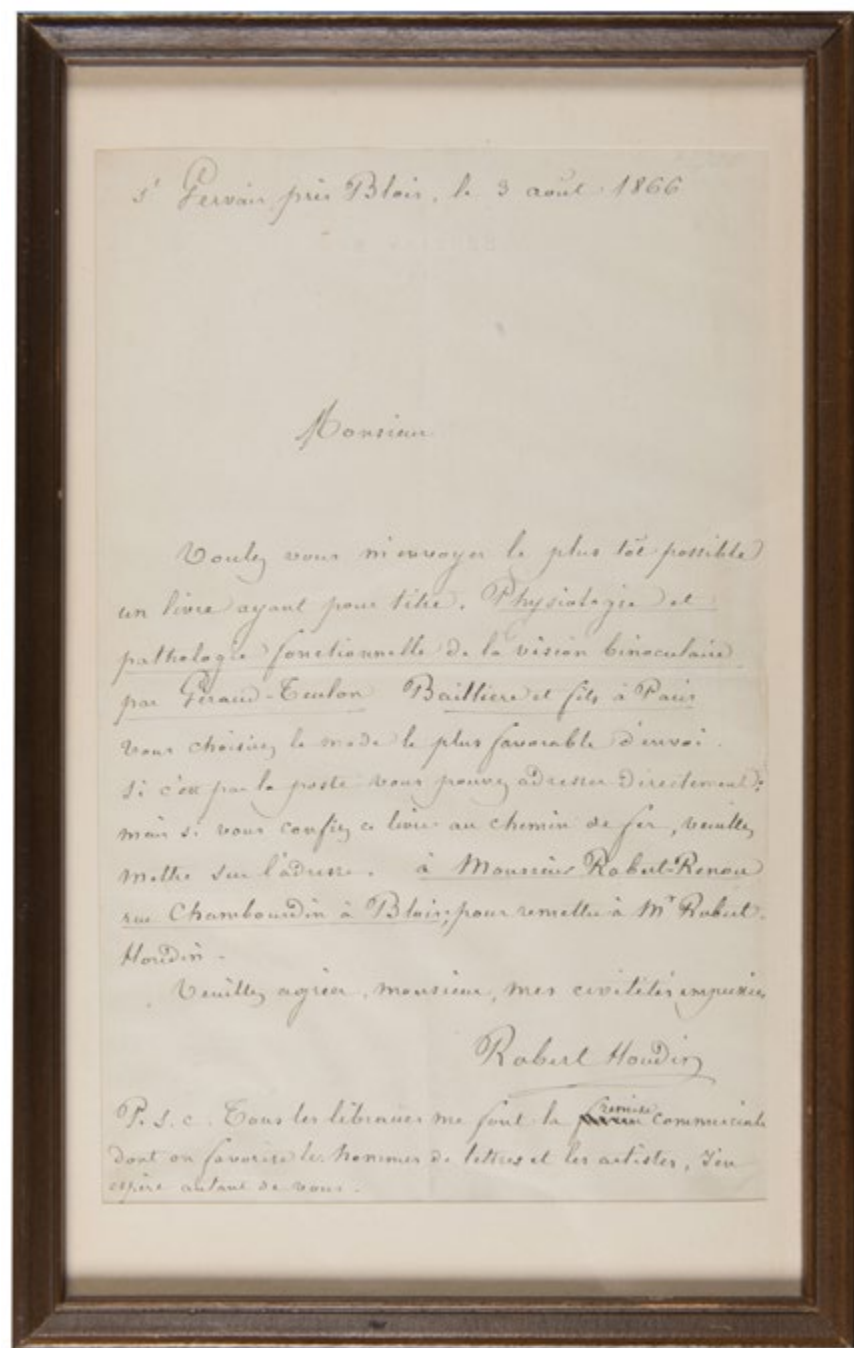 St Gervais près Blois, le 3 août 1866
Monsieur
Voulez vous m'envoyer le plus tôt possible
un livre ayant pour titre. Physiologie et
pathologie fonctionnelle de la vision binoculaire
par Giraud-Teulon Baillière et fils à Paris
Vous choisirez le mode le plus favorable d'envoi.
Si c'est par la poste vous pouvez adresser directement;
mais si vous confiez ce livre au chemin de fer, veuillez
mettre sur l'adresse. à Monsieur Robert-Renou
rue Chambourdin à Blois, pour remettre à Mr Robert-
Houdin.
Veuillez agréer, monsieur, mes civilités empressées
Robert Houdin
P.S.c. Tous les libraires me font la remise commerciale
dont on favorise les hommes de lettres et les artistes, J'en
espère autant de vous.